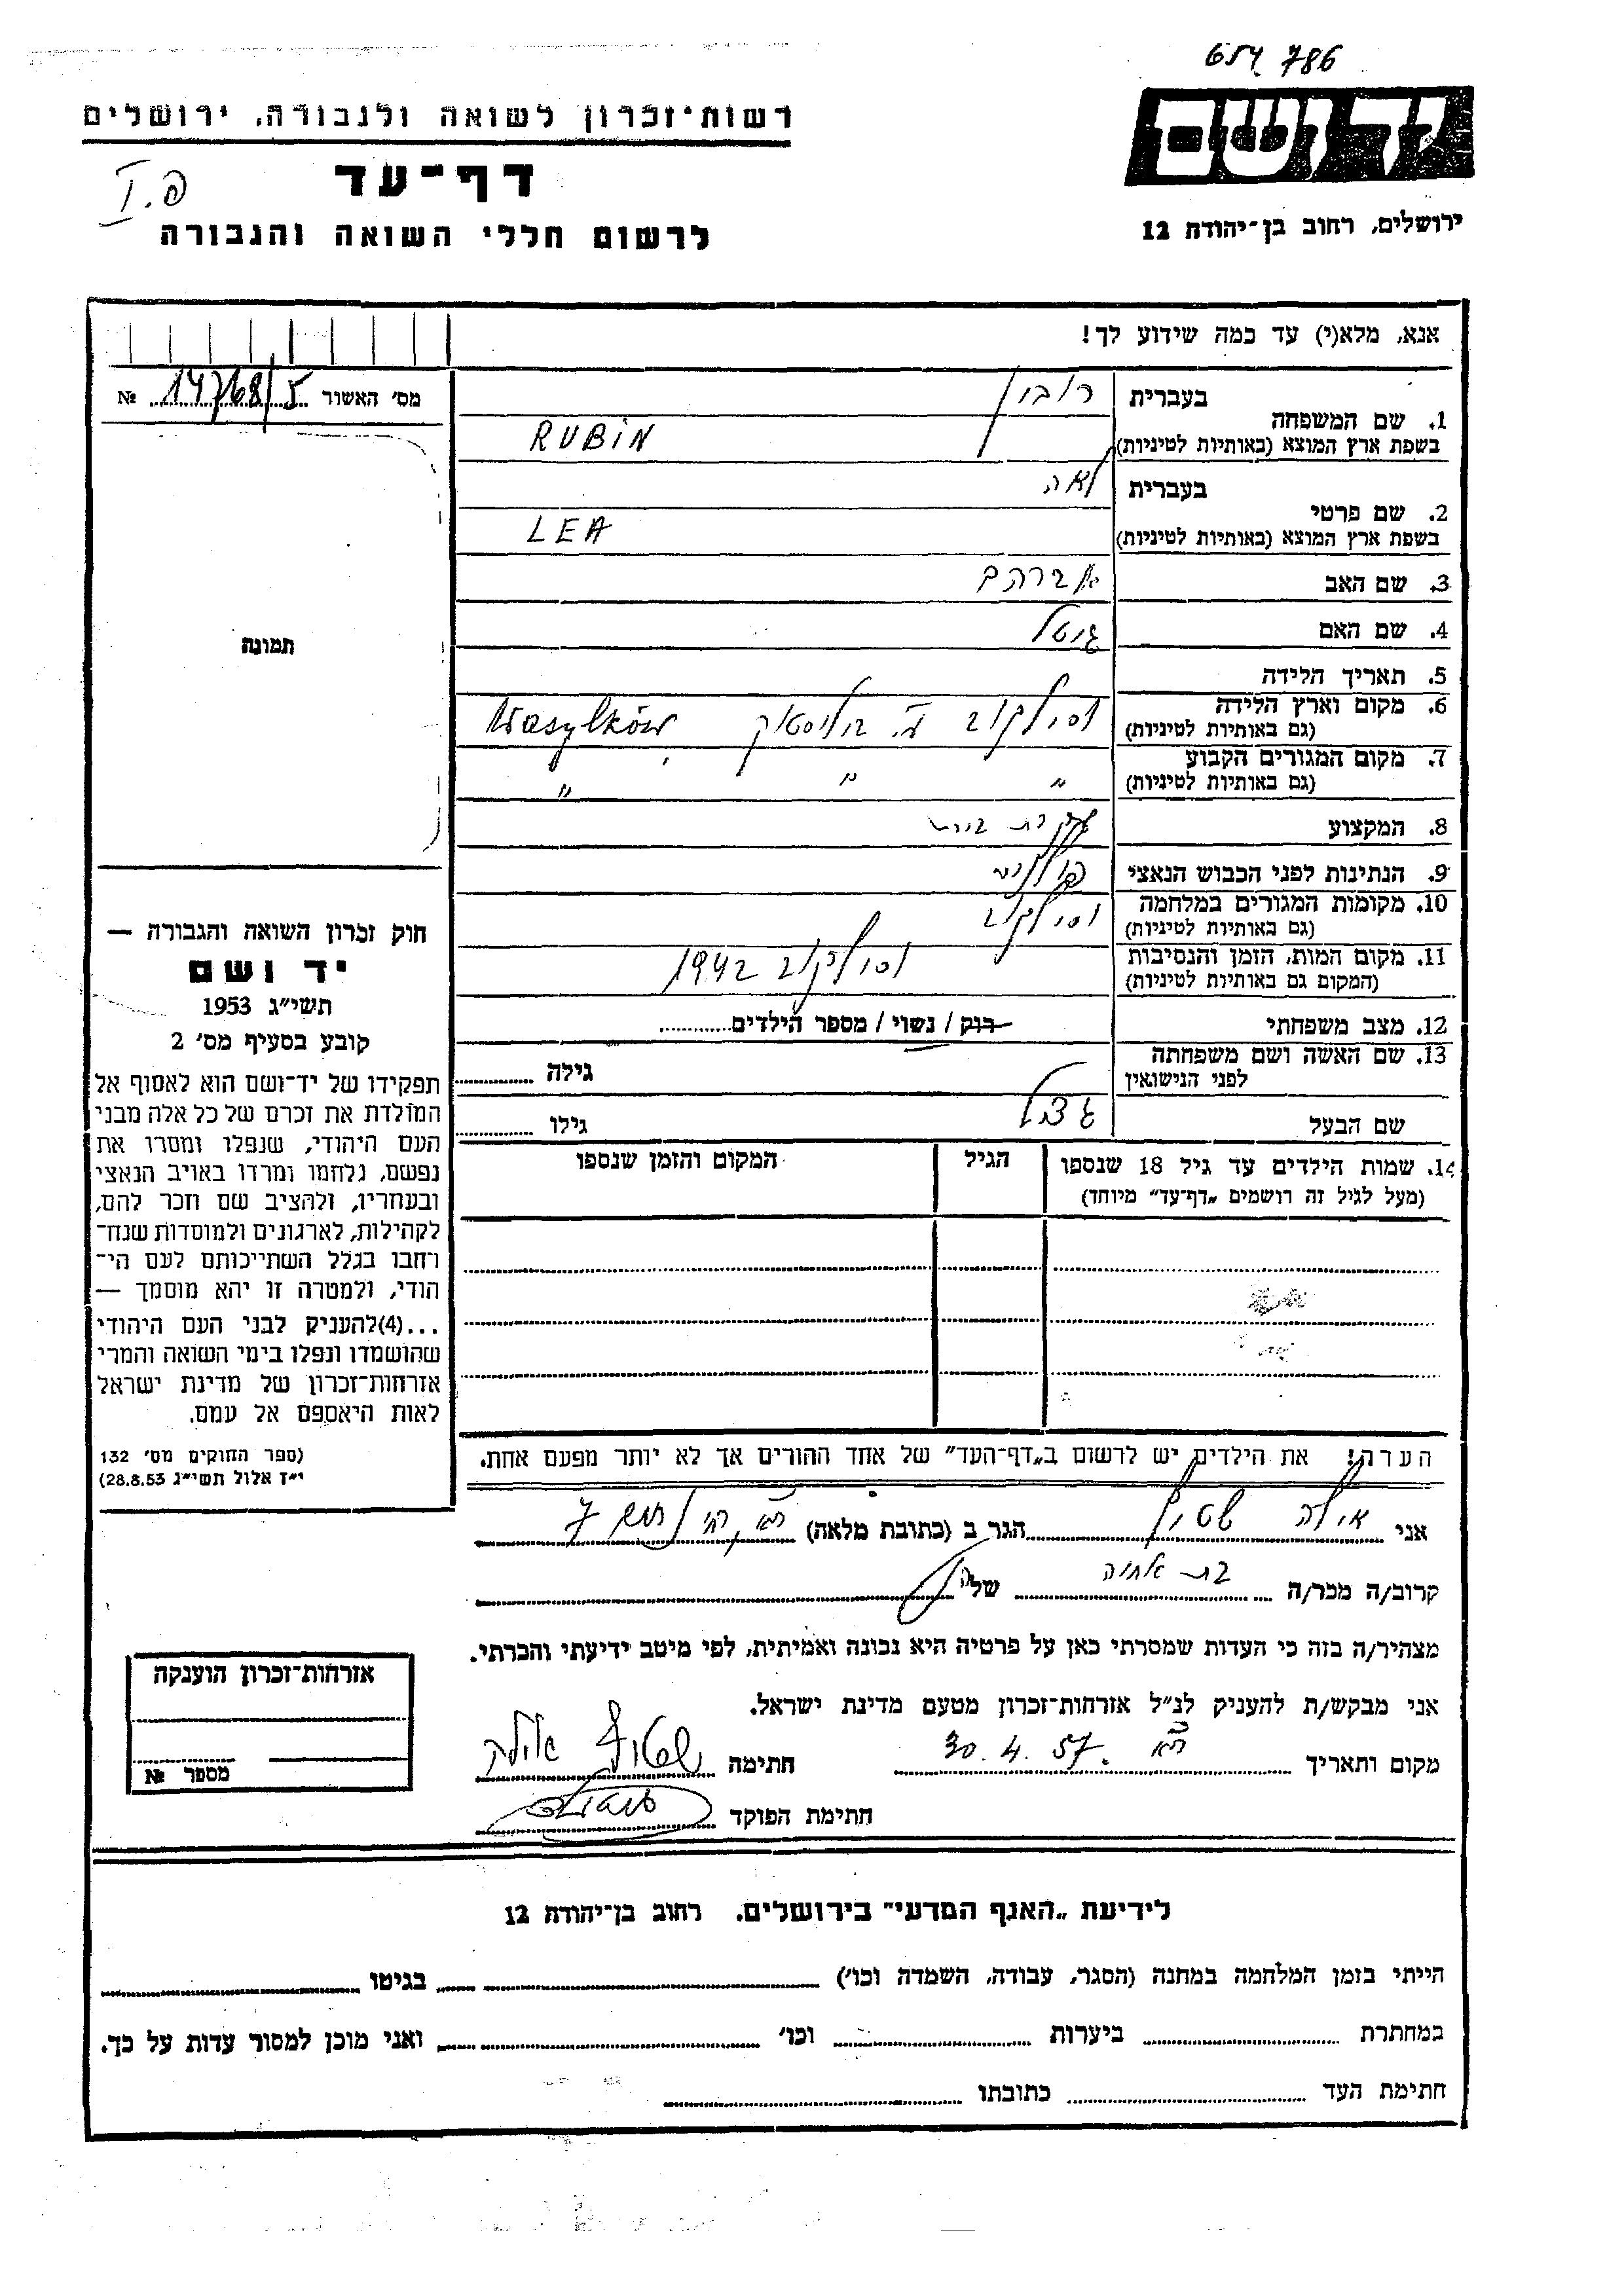 654 786
יד ושם
ירושלים, רחוב בן־יהודה 12
רשות־זכרון לשואה ולגבורה, ירושלים
דף־עד
I.פ
לרשום חללי השואה והגבורה
אנא, מלא(י) עד כמה שידוע לך!
מס׳ האשור 14768/5 №
תמונה
1. שם המשפחה
בעברית רובין
בשפת ארץ המוצא (באותיות לטיניות) RUBIN
2. שם פרטי
בעברית לאה
בשפת ארץ המוצא (באותיות לטיניות) LEA
3. שם האב אברהם
4. שם האם גיטל
5. תאריך הלידה
6. מקום וארץ הלידה וסילקוב ע. ביליסטוק Wasylków
(גם באותיות לטיניות)
7. מקום המגורים הקבוע " " "
(גם באותיות לטיניות)
8. המקצוע עקרת בית
9. הנתינות לפני הכבוש הנאצי פולנית
10. מקומות המגורים במלחמה וסילקוב
(גם באותיות לטיניות)
11. מקום המות, הזמן והנסיבות וסילקוב 1942
(המקום גם באותיות לטיניות)
12. מצב משפחתי רוק / נשוי / מספר הילדים
13. שם האשה ושם משפחתה
לפני הנישואין גילה
שם הבעל גילו
14. שמות הילדים עד גיל 18 שנספו הגיל המקום והזמן שנספו
(מעל לגיל זה רושמים „דף־עד״ מיוחד)
הערה! את הילדים יש לרשום ב„דף־העד״ של אחד ההורים אך לא יותר מפעם אחת.
חוק זכרון השואה והגבורה —
יד ושם
תשי״ג 1953
קובע בסעיף מס׳ 2
תפקידו של יד־ושם הוא לאסוף אל
המולדת את זכרם של כל אלה מבני
העם היהודי, שנפלו ומסרו את
נפשם, נלחמו ומרדו באויב הנאצי
ובעוזריו, ולהציב שם וזכר להם,
לקהילות, לארגונים ולמוסדות שנח־
רבו בגלל השתייכותם לעם הי־
הודי, ולמטרה זו יהא מוסמך —
...(4)להעניק לבני העם היהודי
שהושמדו ונפלו בימי השואה והמרי
אזרחות־זכרון של מדינת ישראל
לאות היאספם אל עמם.
(ספר החוקים מס׳ 132
י״ז אלול תשי״ג 28.8.53)
אני אילה שטיין הגר ב (כתובת מלאה) 7
קרוב/ה מכר/ה בת אחיה של
מצהיר/ה בזה כי העדות שמסרתי כאן על פרטיה היא נכונה ואמיתית, לפי מיטב ידיעתי והכרתי.
אני מבקש/ת להעניק לנ״ל אזרחות־זכרון מטעם מדינת ישראל.
מקום ותאריך 30.4.57 חתימה
חתימת הפוקד
אזרחות־זכרון הוענקה
מספר №
לידיעת „האגף המדעי״ בירושלים. רחוב בן־יהודה 12
הייתי בזמן המלחמה במחנה (הסגר, עבודה, השמדה וכו׳) בגיטו
במחתרת ביערות וכו׳ ואני מוכן למסור עדות על כך.
חתימת העד כתובתו